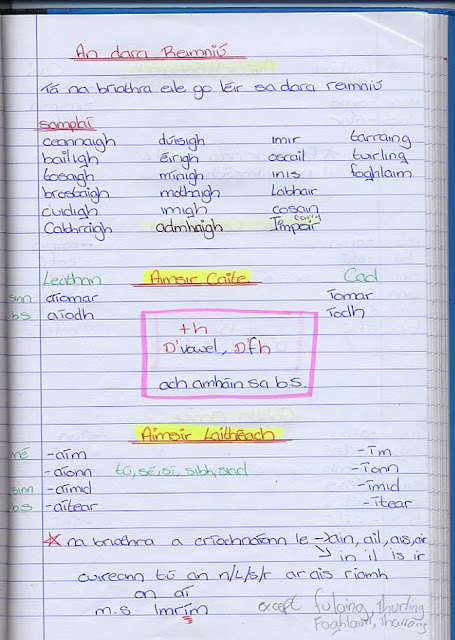 An dara Reimniú
Tá na briathra eile go léir sa dara reimniú
samplaí
ceannaigh dúisigh imir tarraing
bailigh éirigh oscail tuirling
tosaigh mínigh inis foghlaim
brostaigh mothaigh labhair
cuidigh imigh cosain
Cabhraigh admhaigh Iompair (carry)
Leathan Aimsir Caite Caol
sinn aíomar íomar
bs aíodh íodh
+h
D'vowel, D'fh
ach amháin sa b.s.
Aimsir Láithreach
mé -aím -ím
-aíonn tú, sé, sí, sibh, siad -íonn
sinn -aímid -ímid
bs -aítear -ítear
* na briathra a críochnaíonn le → ain, ail, ais, air
↘ in il is ir
cuireann tú an n/L/s/r ar ais roimh
an aí
m.s Imrím except fulaing, Thurling
Foghlaim, Tharraing